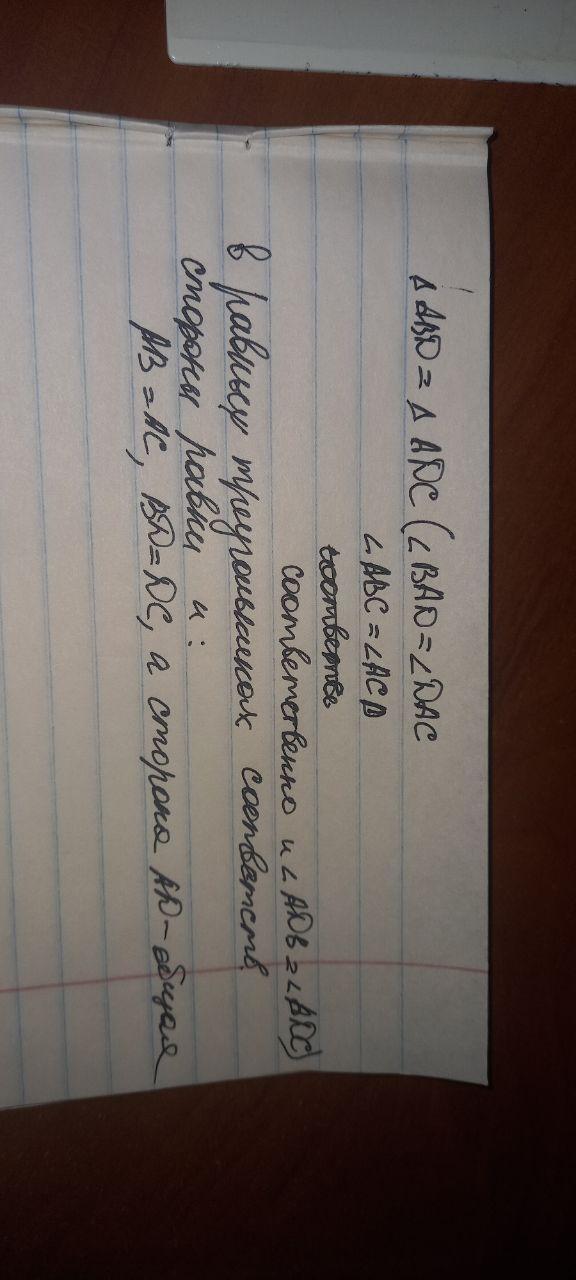 △ ABD = △ ADC (∠BAD = ∠DAC
∠ABC = ∠ACD
соответственно и ∠ADB = ∠ADC)
В равных треугольниках соответств.
стороны равны и:
AB = AC, BD = DC, а сторона AD - общая